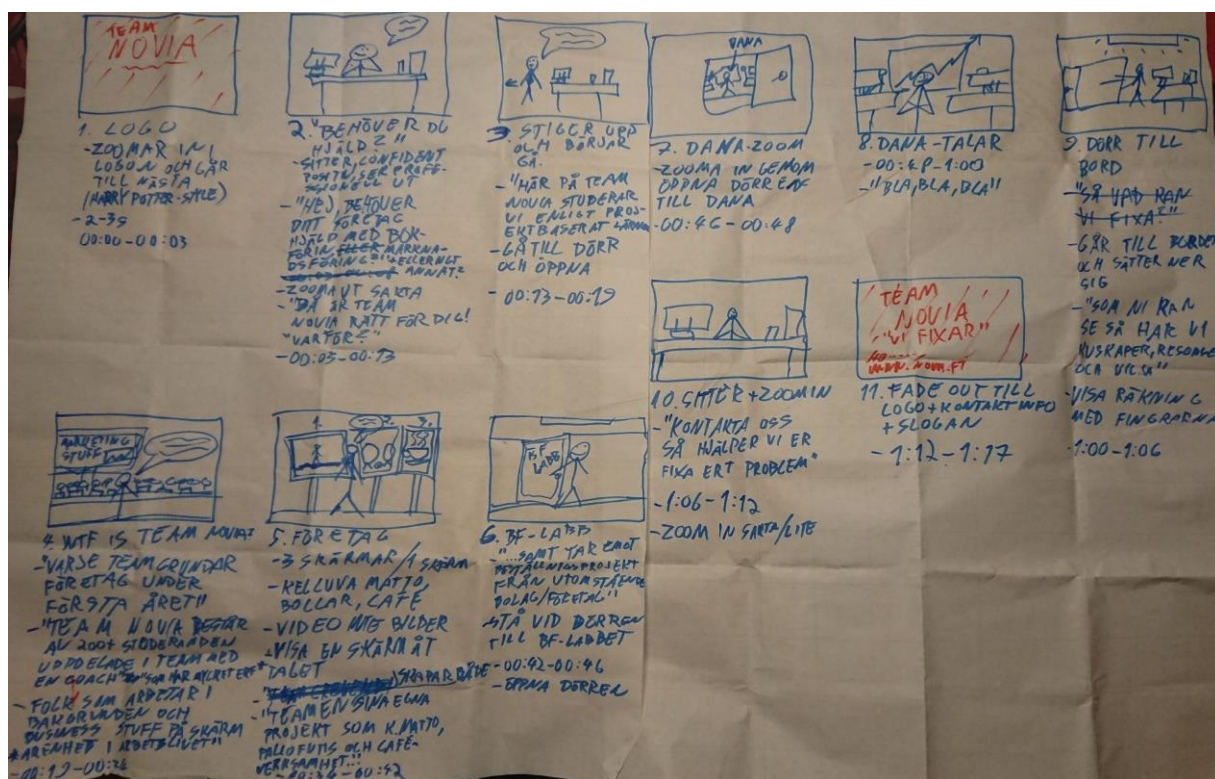 TEAM
NOVIA
1. LOGO
-ZOOMAR IN I
LOGON OCH GÅR
TILL NÄSTA
(HARRY POTTER-STYLE)
-2-3s
00:00-00:03
2. "BEHÖVER DU
HJÄLP?"
-SITTER, CONFIDENT
POSITIV, SER PROFE-
SSIONELL UT
-"HEJ, BEHÖVER
DITT FÖRETAG
HJÄLP MED BOK-
FÖRIN ELLER MARKNA-
DSFÖRING?" ELLER NGT
ANNAT?
-ZOOMA UT SAKTA
-"DÅ ÄR TEAM
NOVIA RÄTT FÖR DIG!
"VARFÖR?"
-00:03-00:13
3. STIGER UPP
OCH BÖRJAR
GÅ.
-"HÄR PÅ TEAM
NOVIA STUDERAR
VI ENLIGT PROJ-
EKTBASERAT
-GÅ TILL DÖRR
OCH ÖPPNA
-00:13-00:19
DANA
7. DANA-ZOOM
-ZOOMA IN GENOM
ÖPPNA DÖRREN
TILL DANA
-00:46-00:48
8. DANA-TALAR
-00:48-1:00
-"BLA, BLA, BLA"
9. DÖRR TILL
BORD
"SÅ VAD KAN
VI FIXA?"
-GÅR TILL BORDET
OCH SÄTTER NER
SIG
-"SOM NI KAN
SE SÅ HAR VI
KUSKAPER, RESURSER
OCH VILJA"
-VISA RÄKNING
MED FINGRARNA
-1:00-1:06
10. SITTER+ZOOM IN
-"KONTAKTA OSS
SÅ HJÄLPER VI ER
FIXA ERT PROBLEM"
-1:06-1:12
-ZOOM IN SAKTA/LITE
TEAM
NOVIA
"VI FIXAR"
11. FADE OUT TILL
LOGO+KONTAKT INFO
+SLOGAN
-1:12-1:17
MARKETING
STUFF
4. WTF IS TEAM NOVIA?
-"VARJE TEAM GRUNDAR
FÖRETAG UNDER
FÖRSTA ÅRET"
-"TEAM NOVIA BESTÅR
AV 200+ STUDERANDEN
UPPDELADE I TEAM MED
EN COACH" SOM HAR MYCKET ERF*
-FOLK SOM ARBETAR I
BAKGRUNDEN OCH
BUSINESS STUFF PÅ SKÄRM
*ARENHET I ARBETSLIVET"
1. 2. 3.
5. FÖRETAG
-3 SKÄRMAR/1 SKÄRM
-KELLUVA MATTO,
BOLLAR, CAFÉ
-VIDEO INTE BILDER
-VISA EN SKÄRM ÅT
TALGET
SKAPAR BÅDE
-"TEAMEN SINA EGNA
PROJEKT SOM K.MATTO,
PALLOFUTIS OCH CAFÉ-
VERKSAMHET..."
-00:34-00:42
BF
LABB
6. BF-LABB
-"...SAMT TAR EMOT
BESTÄLLNINGSPROJEKT
FRÅN UTOMSTÅENDE
BOLAG/FÖRETAG"
-STÅ VID DÖRREN
TILL BF-LABBET
-00:42-00:46
-ÖPPNA DÖRREN